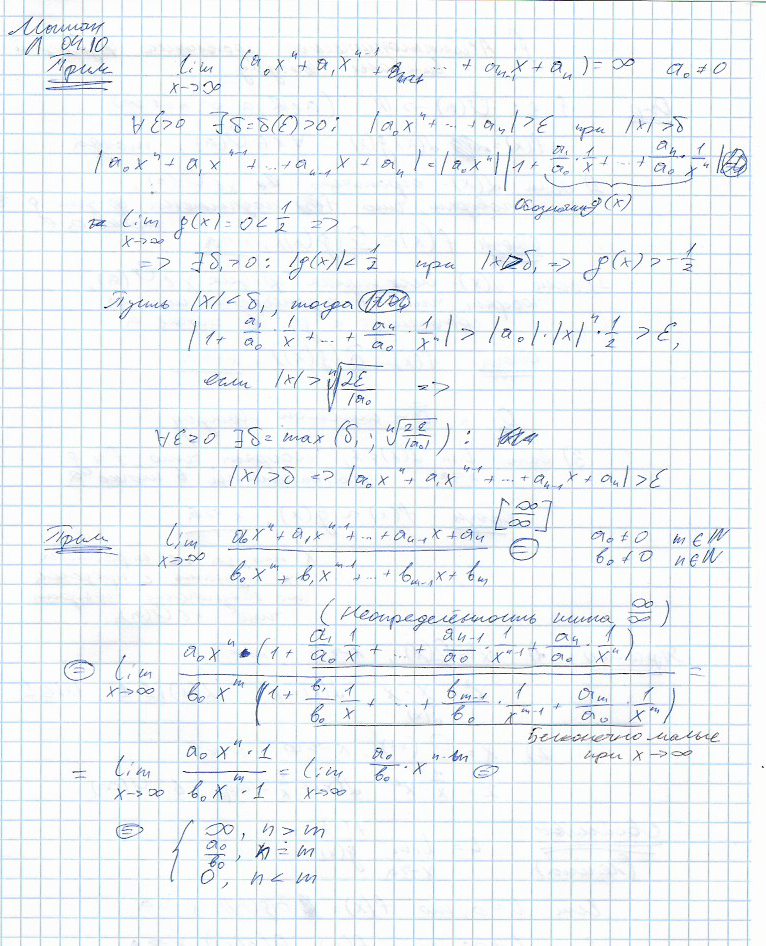 Матан
Л 04.10
Прим lim x->∞ (a₀xⁿ + a₁xⁿ⁻¹ + ... + aₙ₋₁x + aₙ) = ∞ a₀ ≠ 0
∀ε>0 ∃δ=δ(ε)>0: |a₀xⁿ + ... + aₙ| > ε при |x| > δ
|a₀xⁿ + a₁xⁿ⁻¹ + ... + aₙ₋₁x + aₙ| = |a₀xⁿ| |1 + a₁/a₀ · 1/x + ... + aₙ/a₀ · 1/xⁿ|
Обозначим g(x)
lim x→∞ g(x) = 0 < 1/2 =>
=> ∃δ₁>0: |g(x)| < 1/2 при |x| > δ₁ => g(x) > -1/2
Пусть |x| < δ₁, тогда
|1 + a₁/a₀ · 1/x + ... + aₙ/a₀ · 1/xⁿ| > |a₀|·|x|ⁿ · 1/2 > ε,
если |x| > ⁿ√(2ε/|a₀) =>
∀ε>0 ∃δ = max(δ₁; ⁿ√(2ε/|a₀|)):
|x| > δ => |a₀xⁿ + a₁xⁿ⁻¹ + ... + aₙ₋₁x + aₙ| > ε
[∞/∞]
Прим lim x→∞ (a₀xⁿ + a₁xⁿ⁻¹ + ... + aₙ₋₁x + aₙ)/(b₀xᵐ + b₁xᵐ⁻¹ + ... + bₘ₋₁x + bₘ) = a₀ ≠ 0 m ∈ ℕ
b₀ ≠ 0 n ∈ ℕ
(Неопределённость типа ∞/∞)
= lim x→∞ (a₀xⁿ · (1 + a₁/a₀ · 1/x + ... + aₙ₋₁/a₀ · 1/xⁿ⁻¹ + aₙ/a₀ · 1/xⁿ))/(b₀xᵐ (1 + b₁/b₀ · 1/x + ... + bₘ₋₁/b₀ · 1/xᵐ⁻¹ + aₘ/a₀ · 1/xᵐ)) =
Бесконечно малые
при x→∞
= lim x→∞ (a₀xⁿ · 1)/(b₀xᵐ · 1) = lim x→∞ a₀/b₀ · xⁿ⁻ᵐ =
= { ∞, n > m
a₀/b₀, n = m
0, n < m